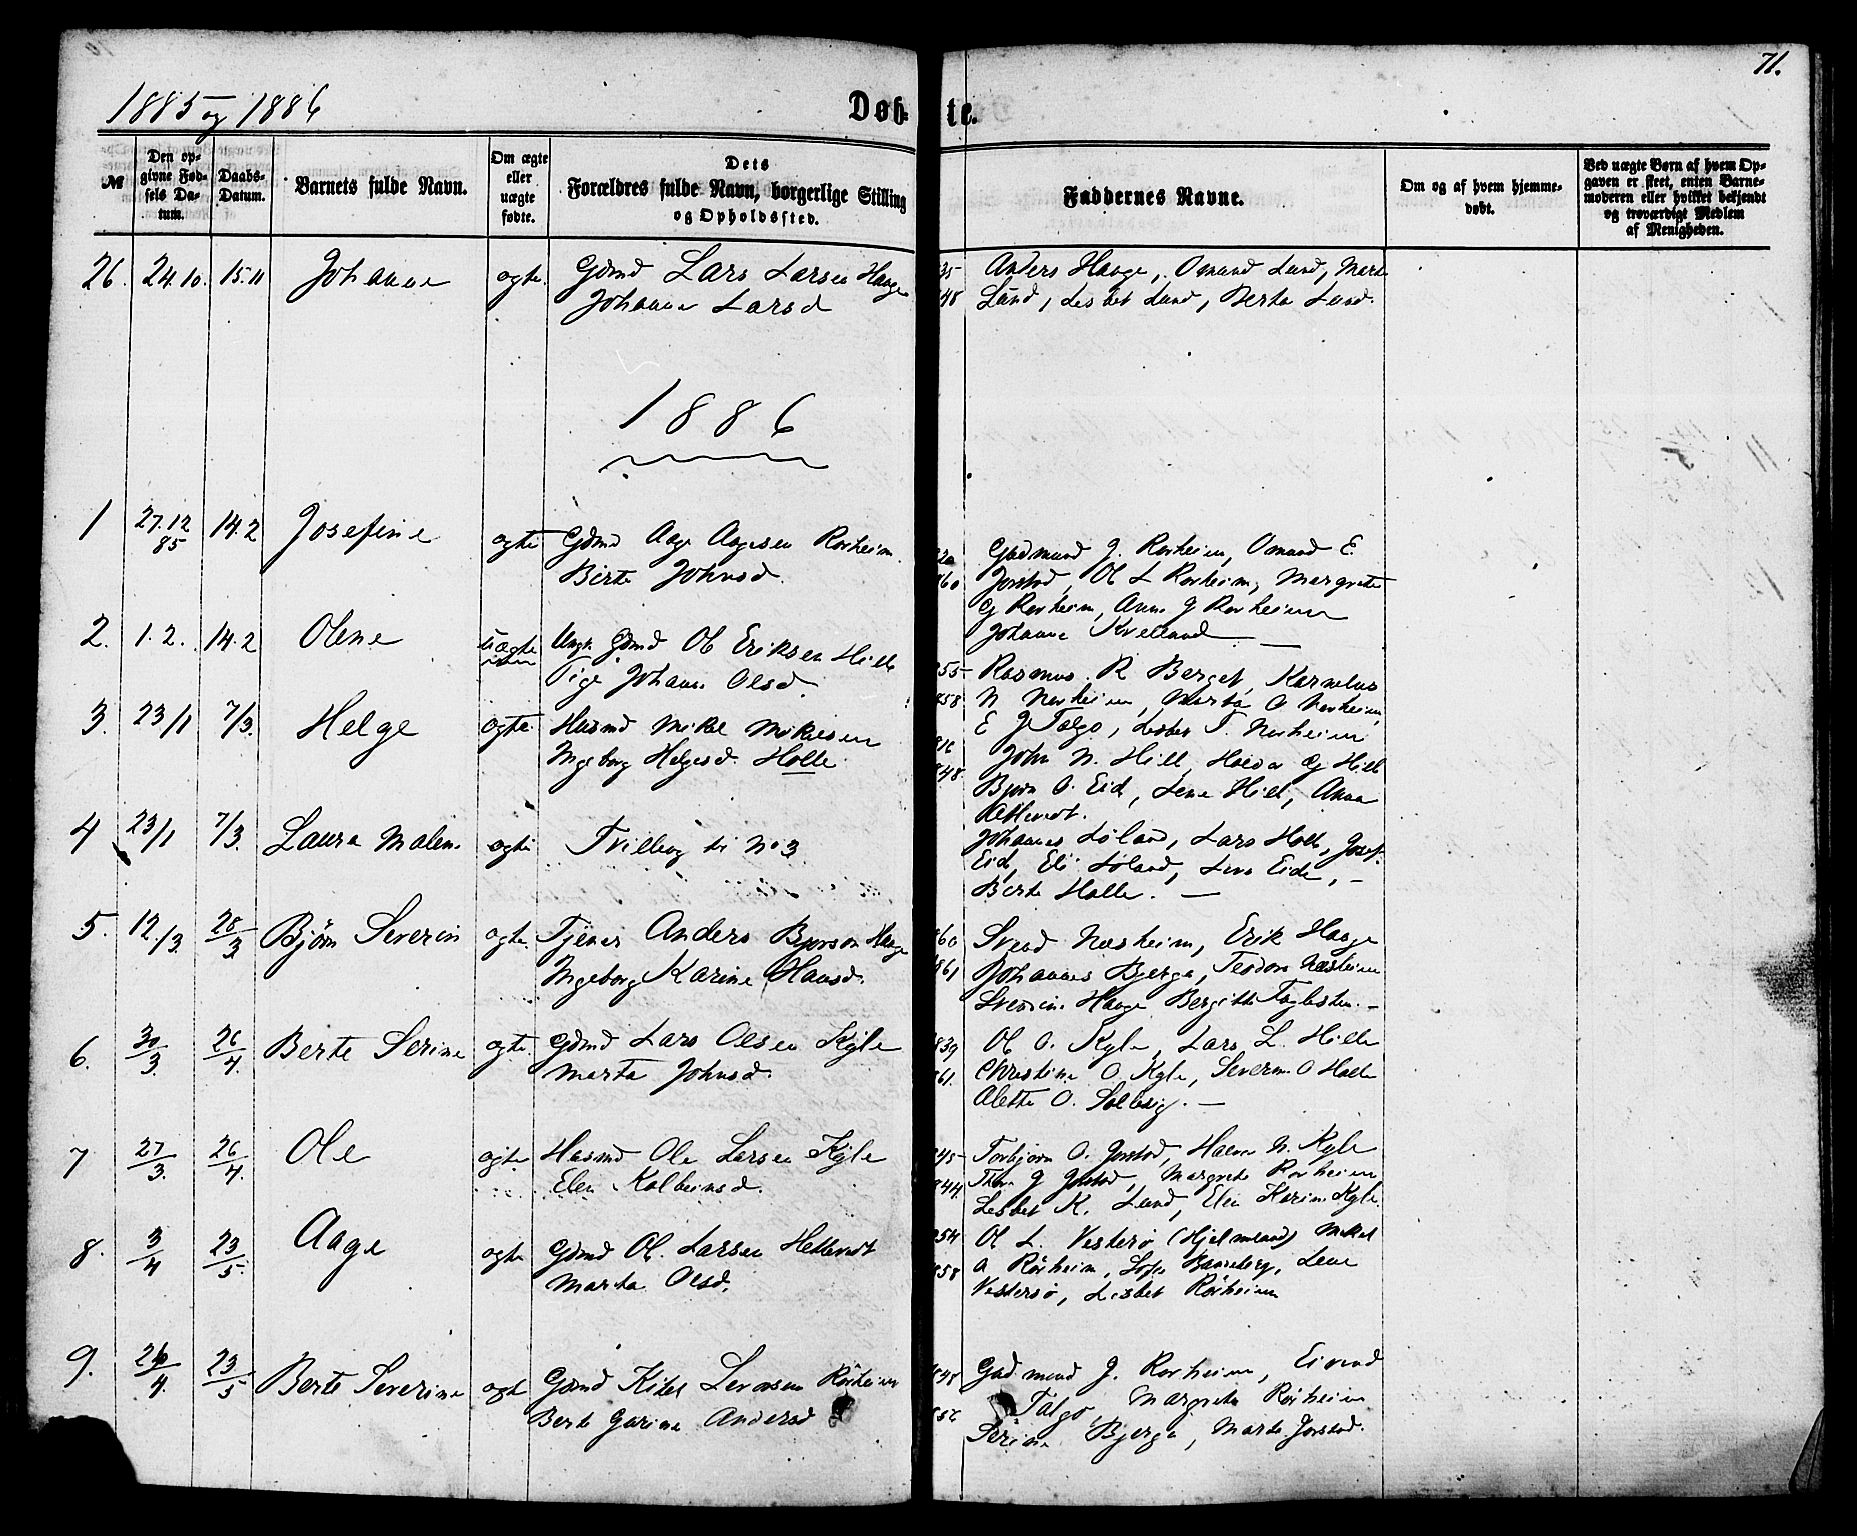 71.
1885 og 1886
Døb- te.
№
Den op-
givne Fød-
sels Da-
tum.
Daabs-
Datum.
Barnets fulde Navn.
Om ægte
eller
uægte
fødte.
Dets
Forældres fulde Navn, borgerlige Stilling
og Opholdssted.
Faddernes Navne.
Om og af hvem hjemme-
døbt.
Ved uægte Børn af hvem Op-
gaven er skeet, enten Barne-
moderen eller hvilket bekjendt
og troværdigt Medlem
af Menigheden.
26. 24.10. 15.11 Johanne ogte. Gdmd Lars Larsen Hauge
Johanne Larsd
35 Anders Hauge, Omund Lund, Marta
48 Lund, Lisbet Lund, Berta Lund.
1886
1 27.12 14.2 Josefine ogte Gdmd Aage Aagesen Rorheim
85 Birte Johnsd.
Gudmund J. Rorheim, Omund E.
60 Jorstad, Ol L Rorheim, Margrete
G Rorheim, Anna J Rorheim
Johanne Kvelland
2. 1.2. 14.2 Oline uægte Ungk. Gdmd Ol Eriksen Hille
Pige Johanne Olsd.
55 Rasmus R Berget, Kornelius
858 N Norheim, Marta O Norheim,
E J Talgo, Lisbet T. Norheim
3. 23/1 7/3. Helge ogte Husmd Mikal Mikalsen
Ingeborg Helgesd. Holle.
816 John N. Hill, Halvor G Hill
848. Bjørn O. Eid, Lene Hill, Anna
Hettevedt.
4 23/1 7/3. Laura Malene ogte Tvilling til No 3
Johannes Loland, Lars Holle, Josef
Eid, Eli Loland, Lene Eide, –
Berte Halle. –
5. 12./3. 28/3 Bjørn Severin ogte. Tjener Anders Bjorson Hauge
Ingeborg Karine Hansd.
60 Svend Næsheim, Erik Hauge
861 Johannes Bjerga, Teodora Næsheim
Severine Hauge Bergitte Foglesten. –
6. 30/3. 26/4. Berte Serine ogte. Gdmd Lars Olsen Kyle
Marta Johnsd.
839 Ol O. Kyle, Lars L. Hille
61. Christine O. Kyle, Severin O Halle
Alette O. Solberg. –
7 27/3. 26/4. Ole ogte Husmd Ole Larsen Kyle
Elen Kolbeinsd.
845 Torbjorn O. Jorstad, Halvor N. Kyle
844 Thor G Jorstad, Margrete Rorheim
Lisbet K. Lund, Elen Karine Kyle.
8. 3/4 23/5. Aage ogte Gdmd Ol. Larsen Hettevedt
Marta Olsd.
854 Ol L. Vestersø (Hjelmeland) Mikal
858 A Rørheim, Sofie Banneberg, Lene
Vestersø, Lisbet Rørheim
9. 26/4. 23/5 Berte Severine ogt Gdmd Kitel Levorsen Rørheim
Berte Gurine Andersd
848 Gudmund J. Rorheim, Eivind
852 Talgo, Margrete Rørheim
Serine Bjerga, Marta Jorstad.